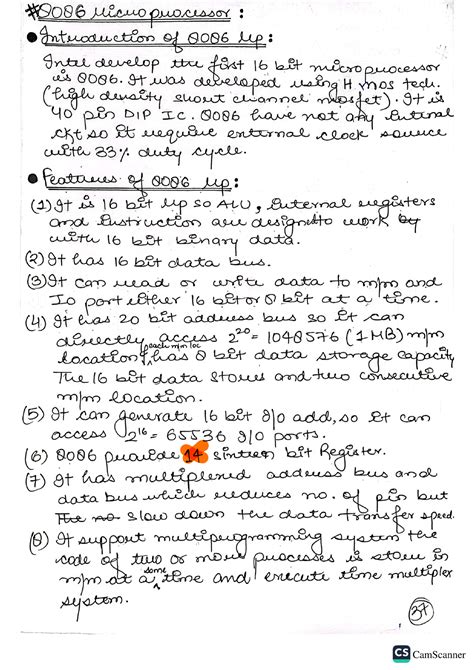 #8086 Microprocessor :
● Introduction of 8086 Up :
Intel develop the first 16 bit microprocessor
is 8086. It was developed using H mos tech.
(high density short channel mosfet). It is
40 pin DIP IC. 8086 have not any internal
ckt so it require enternal clock source
with 33% duty cycle.
● Features of 8086 Up :
(1) It is 16 bit Up so ALU, internal registers
and instruction are designto work by
with 16 bit binary data.
(2) It has 16 bit data bus.
(3) It can read or write data to m/m and
Io port either 16 bit or 8 bit at a time.
(4) It has 20 bit address bus so it can
directly access 2²⁰ = 1048576 (1 MB) m/m
location, each m/m loc has 8 bit data storage capacity
The 16 bit data stores and two consecutive
m/m location.
(5) It can generate 16 bit I/o add, so it can
access 2¹⁶ = 65536 I/o ports.
(6) 8086 provide 14 sixteen bit Register.
(7) It has multiplexed address bus and
data bus which reduces no. of pin but
The no slow down the data transfer speed.
(8) It support multiprogramming system the
code of two or more processes is store in
m/m at a some time and execute time multiplex
system.
37
CS CamScanner